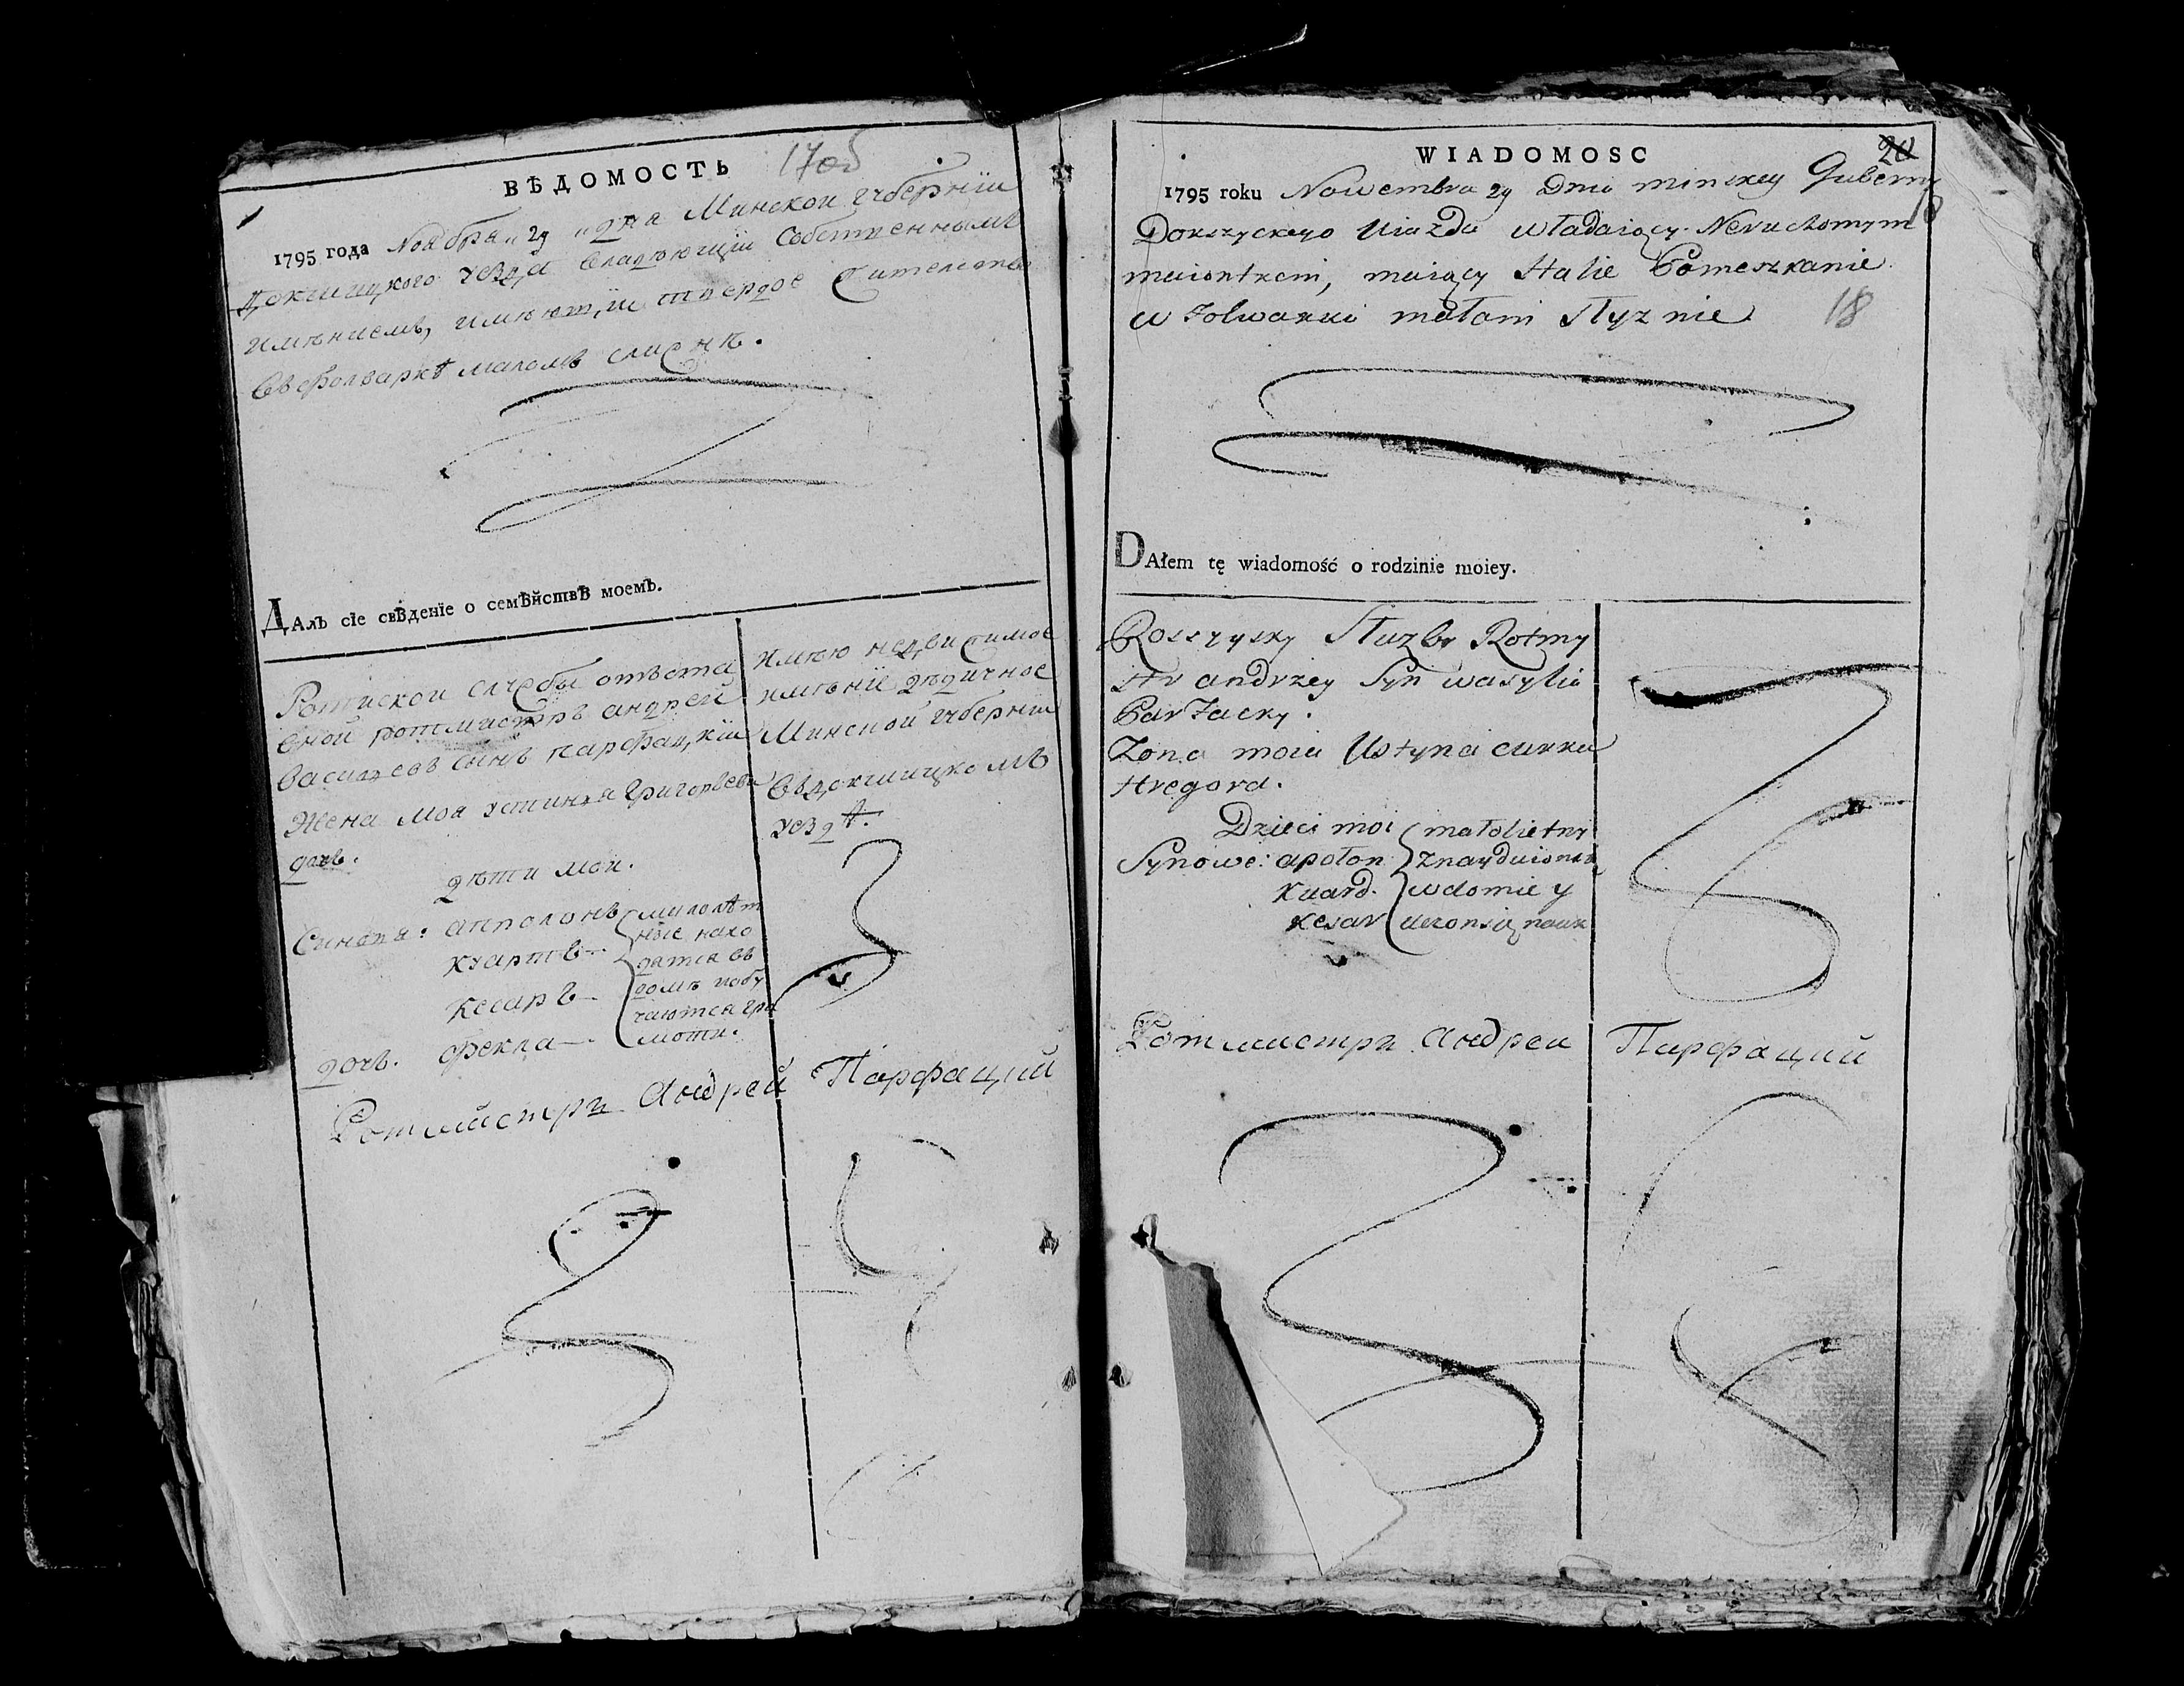 ВѢДОМОСТЬ 17об
1795 года Ноября 29 дня Минской губернїи
Докшицкого уезда владеющїи Собственнымъ
имѣниемъ, имеютїи твердое жителство
въ фолваркѣ маломъ слиznѣ.
ДАлъ сїе свѣденїе о семѣйствѣ моемъ.
Ротискои службы отъста
вной ротмистръ андрей
васильевъ сынъ парфацкїи
Жена моя устинья Григорьева
дочь.
дѣти мои.
Синовя: апполонъ малолѣт
квартъ ные нахо
кесаръ дятся въ
домѣ иобу
чаются гра
дочь. фекла моти.
имею недвижимое
имѣнїе дѣдичное
Минской губернїи
въ докшицкомъ
уездѣ.
Ротмистръ Андрей Парфацкий
WIADOMOSC 20
1795 roku Nowembra 29 Dnia minskey Guberny
Dokszyckego Uiazdu władaiący Neruchomym 18
maiontkem, maiący Stalie Pomeszkanie
w Folwarku małam Slyznie 18
DAłem tę wiadomość o rodzinie moiey.
Rossyisky Służby Rotmy
str andrzey Syn wasylia
Parfacky.
Zona moia Ustyna curka
Hregora.
Dzieci moi małolietny
Synowe: apołon znayduionsie
Kuard. w domie y
Kesar uczonsię nauk
Ротмистръ Андреи Парфацкий